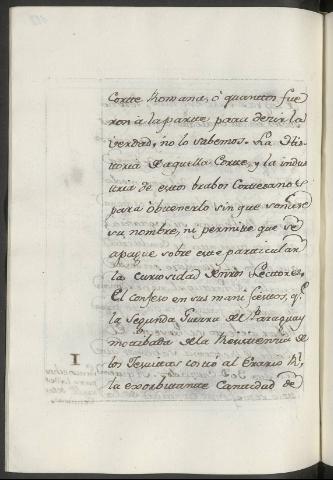 Corte Romana, ó quantos fue
ron á la parte para decir la
verdad, no lo sabemos. La His
toria de aquella Corte, y la indus
tria de estos brabos Cortesanos
para obtenerlo sin que sonase
su nombre, ni permite que se
apague sobre este particular
la curiosidad de nros Lectores.
El confeso en sus manifiestos, q.e
la Segunda Guerra del Paraguay
motibada de la Resistencia de
los Jesuitas costó al Erario R.l
la exorbitante Cantidad de
I